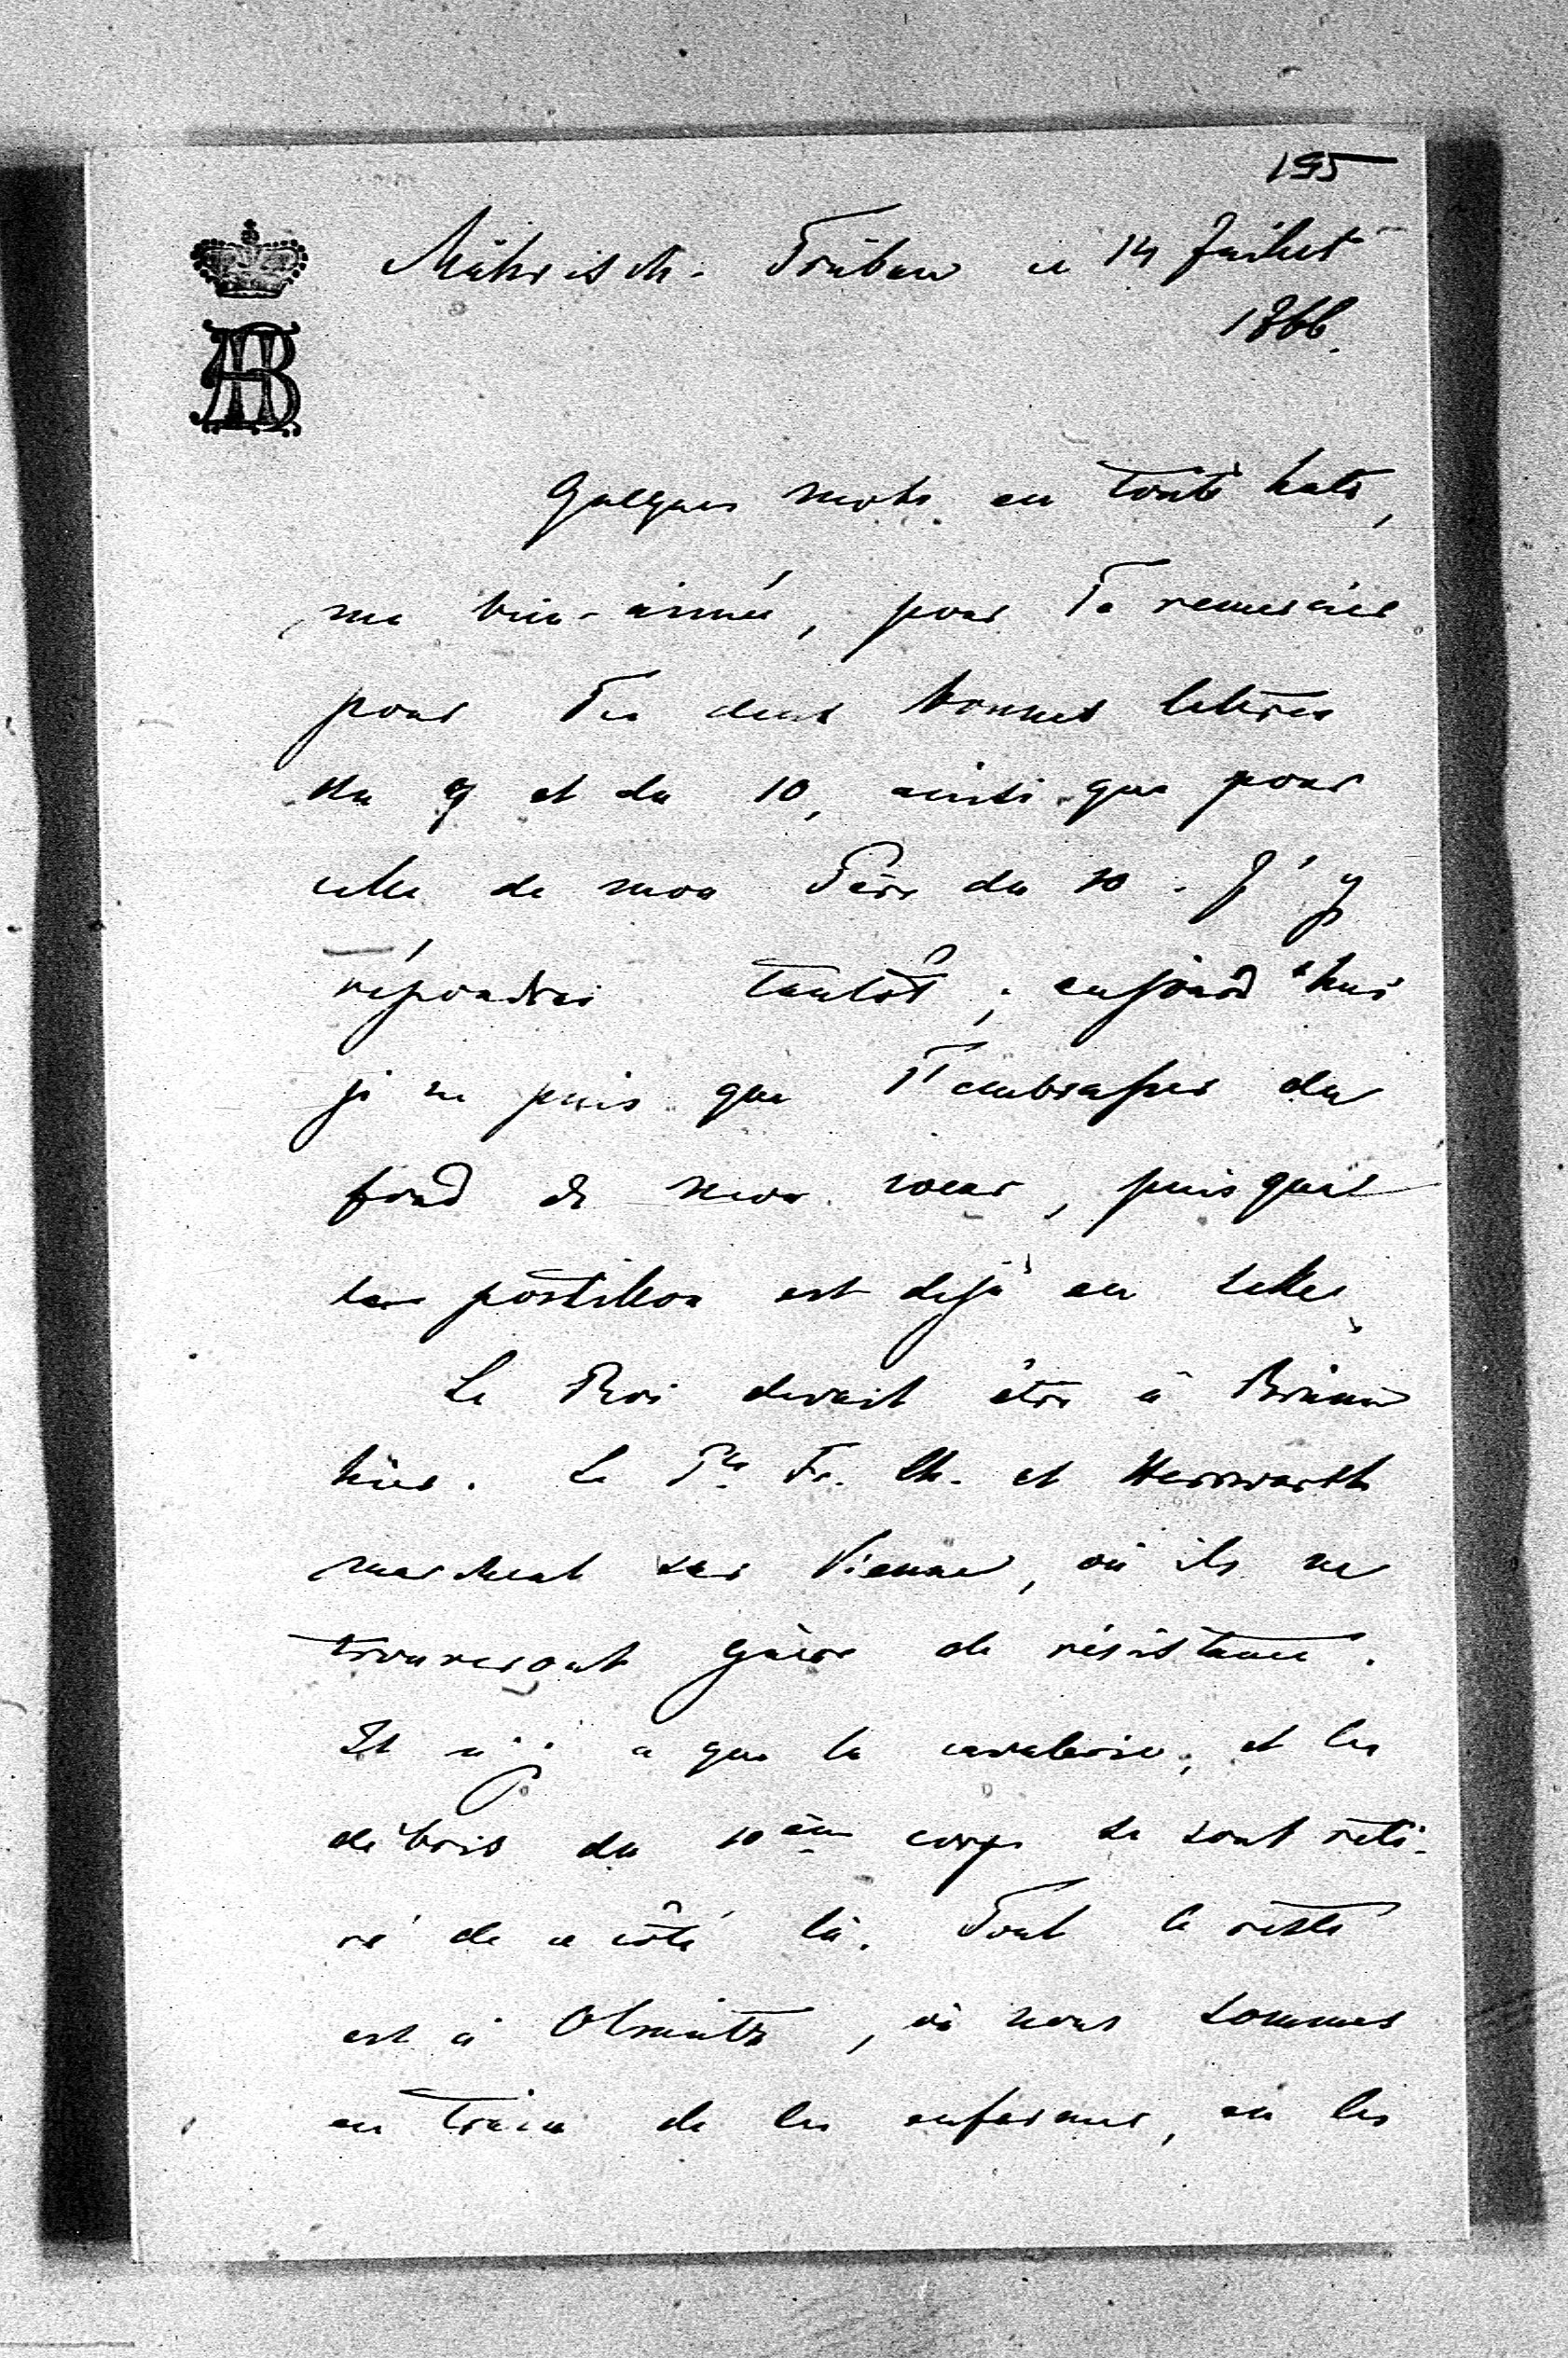 195
Mährisch-Trübau ce 14 Juillet
1866.
AB
Quelques mots en toute hate,
ma bien-aimée, pour Te remercier
pour Tes deux bonnes lettres
du 9 et du 10, ainsi que pour
celle de mon Père du 10. J'y
répondrai tantôt; aujourd'hui
je ne puis que T'embrasser du
fond de mon coeur, puisque
le postillon est déjà en selle.
Le Roi devait être à Brünn
hier. Le Pce Fr. Ch. et Herwarth
marchent sur Vienne, où ils ne
trouveront guère de résistance.
Il n'y a que la cavalerie, et les
débris du 10ème corps se sont reti-
ré de ce côté là. Tout le reste
est à Olmütz, où nous sommes
en train de les enfermer, où les